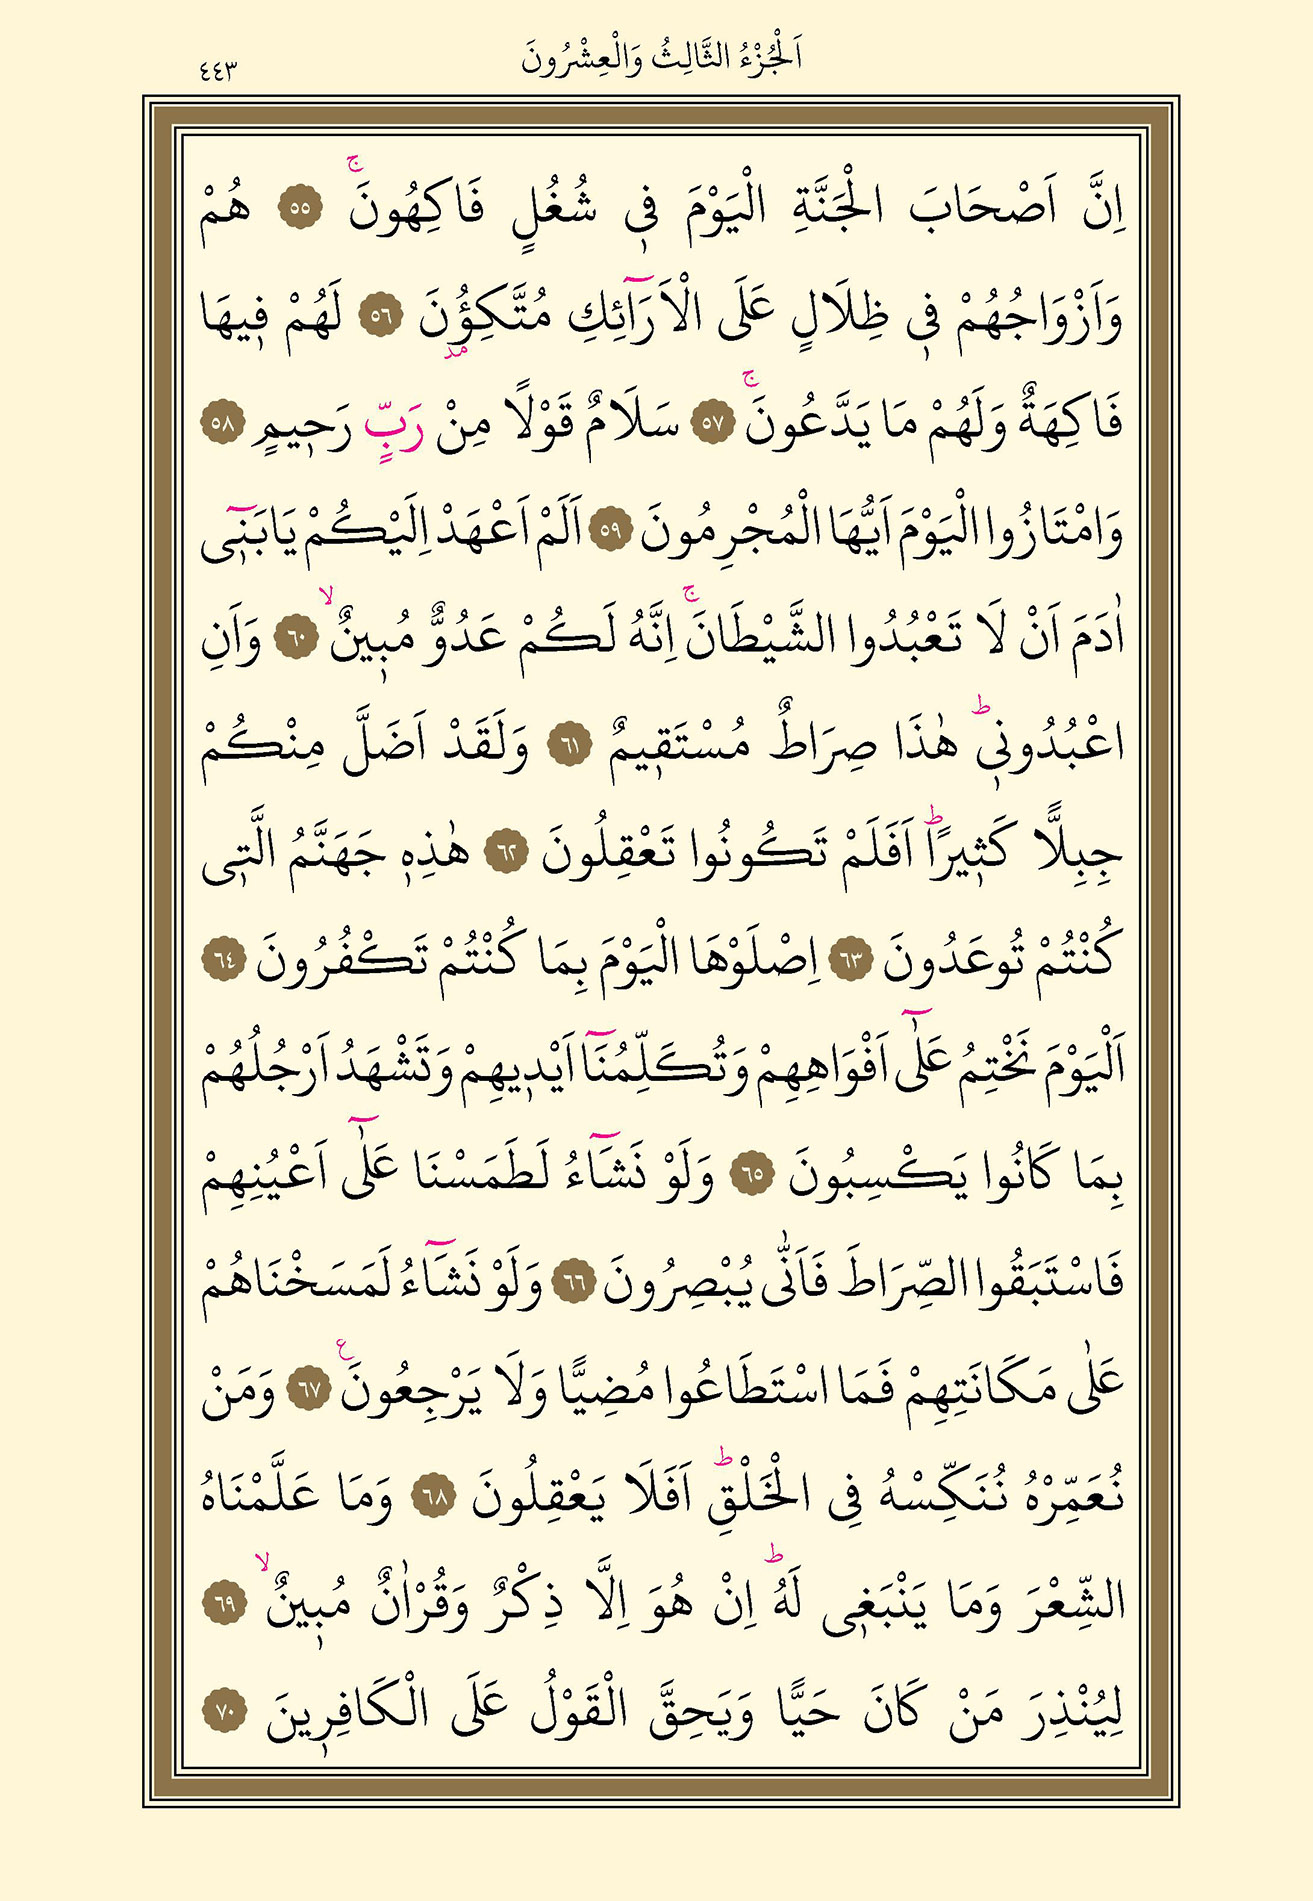 اَلْجُزْءُ الثَّالِثُ وَالْعِشْرُونَ ٤٤٣
اِنَّ اَصْحَابَ الْجَنَّةِ الْيَوْمَ ف۪ي شُغُلٍ فَاكِهُونَۚ ﴿٥٥﴾ هُمْ
وَاَزْوَاجُهُمْ ف۪ي ظِلَالٍ عَلَى الْاَرَٓائِكِ مُتَّكِؤُ۫نَ ﴿٥٦﴾ لَهُمْ ف۪يهَا
فَاكِهَةٌ وَلَهُمْ مَا يَدَّعُونَۚ ﴿٥٧﴾ سَلَامٌ قَوْلًا مِنْ رَبٍّ رَح۪يمٍ ﴿٥٨﴾
وَامْتَازُوا الْيَوْمَ اَيُّهَا الْمُجْرِمُونَ ﴿٥٩﴾ اَلَمْ اَعْهَدْ اِلَيْكُمْ يَابَن۪ٓي
اٰدَمَ اَنْ لَا تَعْبُدُوا الشَّيْطَانَۚ اِنَّهُ لَكُمْ عَدُوٌّ مُب۪ينٌۙ ﴿٦٠﴾ وَاَنِ
اعْبُدُون۪يۜ هٰذَا صِرَاطٌ مُسْتَق۪يمٌ ﴿٦١﴾ وَلَقَدْ اَضَلَّ مِنْكُمْ
جِبِلًّا كَث۪يرًاۜ اَفَلَمْ تَكُونُوا تَعْقِلُونَ ﴿٦٢﴾ هٰذِه۪ جَهَنَّمُ الَّت۪ي
كُنْتُمْ تُوعَدُونَ ﴿٦٣﴾ اِصْلَوْهَا الْيَوْمَ بِمَا كُنْتُمْ تَكْفُرُونَ ﴿٦٤﴾
اَلْيَوْمَ نَخْتِمُ عَلٰٓى اَفْوَاهِهِمْ وَتُكَلِّمُنَٓا اَيْد۪يهِمْ وَتَشْهَدُ اَرْجُلُهُمْ
بِمَا كَانُوا يَكْسِبُونَ ﴿٦٥﴾ وَلَوْ نَشَٓاءُ لَطَمَسْنَا عَلٰٓى اَعْيُنِهِمْ
فَاسْتَبَقُوا الصِّرَاطَ فَاَنّٰى يُبْصِرُونَ ﴿٦٦﴾ وَلَوْ نَشَٓاءُ لَمَسَخْنَاهُمْ
عَلٰى مَكَانَتِهِمْ فَمَا اسْتَطَاعُوا مُضِيًّا وَلَا يَرْجِعُونَ۟ ﴿٦٧﴾ وَمَنْ
نُعَمِّرْهُ نُنَكِّسْهُ فِي الْخَلْقِۜ اَفَلَا يَعْقِلُونَ ﴿٦٨﴾ وَمَا عَلَّمْنَاهُ
الشِّعْرَ وَمَا يَنْبَغ۪ي لَهُۜ اِنْ هُوَ اِلَّا ذِكْرٌ وَقُرْاٰنٌ مُب۪ينٌۙ ﴿٦٩﴾
لِيُنْذِرَ مَنْ كَانَ حَيًّا وَيَحِقَّ الْقَوْلُ عَلَى الْكَافِر۪ينَ ﴿٧٠﴾